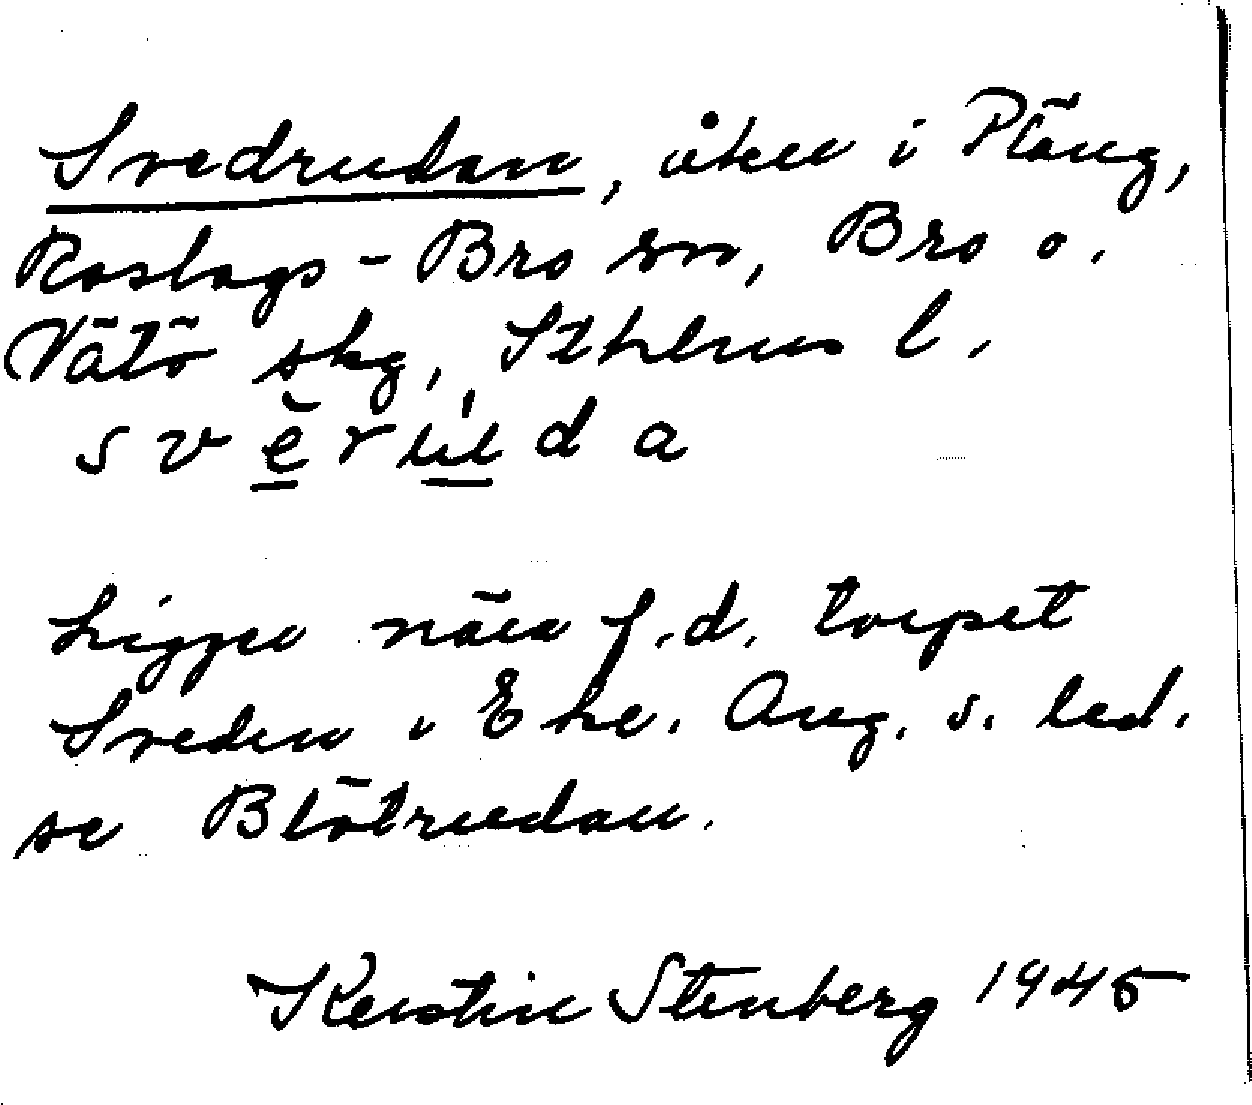 Svedrudan, åker i Pläng,
Roslags-Bro sn, Bro o.
Vätö skg, Sthlms l.
Ligger nära f.d. torpet
Sveden i Eke. Ang. s. led.
se Blötrudan.
Kerstin Stenberg 1945